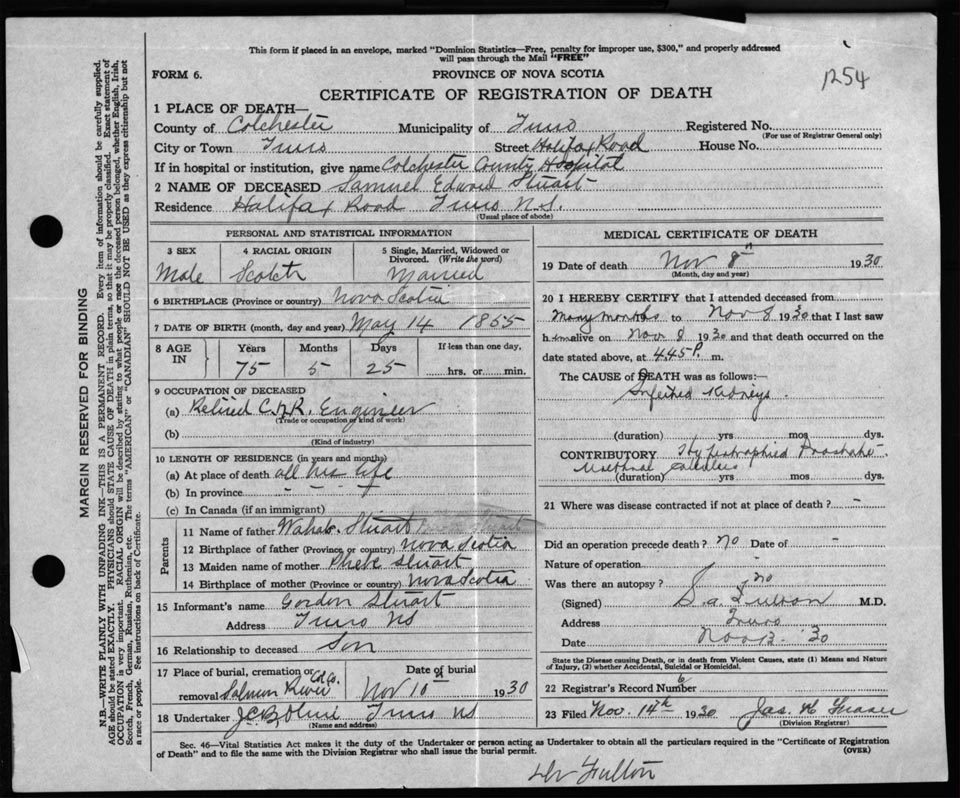 This form if placed in an envelope, marked "Dominion Statistics—Free, penalty for improper use, $300," and properly addressed
will pass through the Mail "FREE"
1254
FORM 6.
PROVINCE OF NOVA SCOTIA
CERTIFICATE OF REGISTRATION OF DEATH
1 PLACE OF DEATH—
County of Colchester Municipality of Truro Registered No.
(For use of Registrar General only)
City or Town Truro Street Halifax Road House No.
If in hospital or institution, give name Colchester County Hospital
2 NAME OF DECEASED Samuel Edward Stuart
Residence Halifax Road Truro N.S.
(Usual place of abode)
PERSONAL AND STATISTICAL INFORMATION
3 SEX 4 RACIAL ORIGIN 5 Single, Married, Widowed or
Divorced. (Write the word)
Male Scotch Married
6 BIRTHPLACE (Province or country) Nova Scotia
7 DATE OF BIRTH (month, day and year) May 14 1855
8 AGE IN Years Months Days If less than one day,
75 5 25 hrs. or min.
9 OCCUPATION OF DECEASED
(a) Retired C.N.R. Engineer
(Trade or occupation or kind of work)
(b)
(Kind of industry)
10 LENGTH OF RESIDENCE (in years and months)
(a) At place of death all his life
(b) In province " " "
(c) In Canada (if an immigrant)
Parents
11 Name of father Stuart
12 Birthplace of father (Province or country) Nova Scotia
13 Maiden name of mother Phebe Stuart
14 Birthplace of mother (Province or country) Nova Scotia
15 Informant's name Gordon Stuart
Address Truro NS
16 Relationship to deceased Son
17 Place of burial, cremation or
removal Salmon River Col Co.
Date of burial
Nov 10 1930
18 Undertaker Truro NS
(Name and address)
MEDICAL CERTIFICATE OF DEATH
19 Date of death Nov 8th 1930
(Month, day and year)
20 I HEREBY CERTIFY that I attended deceased from
Many months to Nov 8 1930 that I last saw
him alive on Nov 8 1930 and that death occurred on the
date stated above, at 4.45 P. m.
The CAUSE of DEATH was as follows:—
Infected Kidneys.
(duration) yrs mos dys.
CONTRIBUTORY Hypertrophied Prostate.
Urethral Calculus
(duration) yrs. mos. dys.
21 Where was disease contracted if not at place of death? -
Did an operation precede death? no Date of -
Nature of operation -
Was there an autopsy? no
(Signed) S. A. Fulton M.D.
Address Truro
Date Nov 12. '30
State the Disease causing Death, or in death from Violent Causes, state (1) Means and Nature
of Injury, (2) whether Accidental, Suicidal or Homicidal.
22 Registrar's Record Number 6
23 Filed Nov. 14th 1930 Jas.
(Division Registrar)
Sec. 46—Vital Statistics Act makes it the duty of the Undertaker or person acting as Undertaker to obtain all the particulars required in the "Certificate of Registration
of Death" and to file the same with the Division Registrar who shall issue the burial permit. (OVER)
Dr Fulton
MARGIN RESERVED FOR BINDING
N.B.—WRITE PLAINLY WITH UNFADING INK—THIS IS A PERMANENT RECORD. Every item of information should be carefully supplied.
AGE should be stated EXACTLY. PHYSICIANS should STATE CAUSE OF DEATH in plain terms, so that it may be properly classified. Exact statement of
OCCUPATION is very important. RACIAL ORIGIN will be described by stating to what people or race the deceased person belonged, whether English, Irish,
Scotch, French, German, Russian, Ruthenian, etc. The terms "AMERICAN" or "CANADIAN" SHOULD NOT BE USED as they express citizenship but not
a race or people. See instructions on back of Certificate.